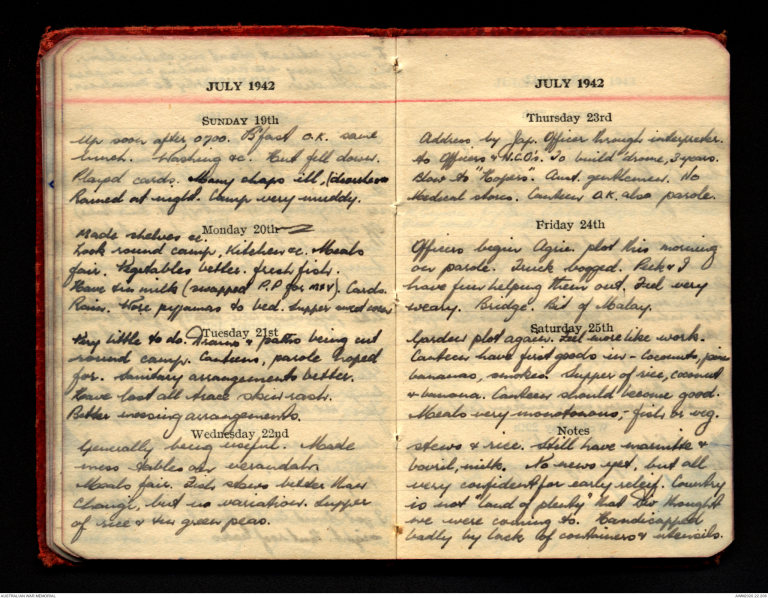 JULY 1942
SUNDAY 19th
Up soon after 0700. B'fast O.K. same
lunch. Washing &c. Hut fell down.
Played cards. Many chaps ill, (diarrhoea
Rained at night. Camp very muddy.
Monday 20th
Made shelves &c.
Took round camp, Kitchen &c. Meals
fair. Vegetables better. fresh fish.
Have tin milk (swapped P.P for M&V). Cards.
Rain. Wore pyjamas to bed. Supper sweet corn
Tuesday 21st
Very little to do. Drains & paths being cut
round camp. Canteens, parole hoped
for. Sanitary arrangements better.
Have lost all trace skin rash.
Better messing arrangements.
Wednesday 22nd
Generally being useful. Made
mess tables on verandah.
Meals fair. Fish stews better than
change, but no variation. Supper
of rice & tin green peas.
JULY 1942
Thursday 23rd
Address by Jap. Officer through interpreter.
to Officers & N.C.O's. To build 'drome, 3 years.
Blow to "Hopers". Aust. gentlemen. No
Medical stores. Canteen O.K. also parole.
Friday 24th
Officers begin Agric. plot this morning
on parole. Truck bogged. Peck & I
have fun helping them out. Feel very
weary. Bridge. Bit of Malay.
Saturday 25th
Garden plot again. Feel more like work.
Canteen have first goods in - Coconuts, pine
bananas, smokes. Supper of rice, coconut
& banana. Canteen should become good.
Meals very monotonous, - fish or veg.
Notes
stews & rice. Still have marmite &
bovril, milk. No news yet, but all
very confident for early relief. Country
is not "land of plenty" that Div thought
we were coming to. Handicapped
badly by lack of containers & utensils.
AUSTRALIAN WAR MEMORIAL